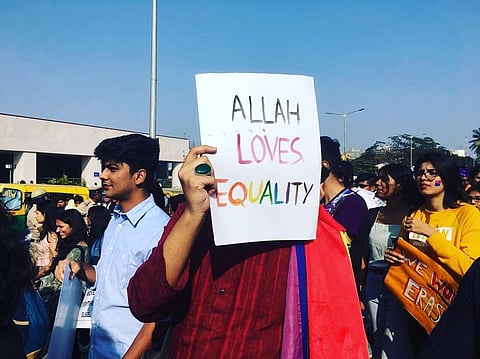 ALLAH
LOVES
EQUALITY
WE WO
ERAS